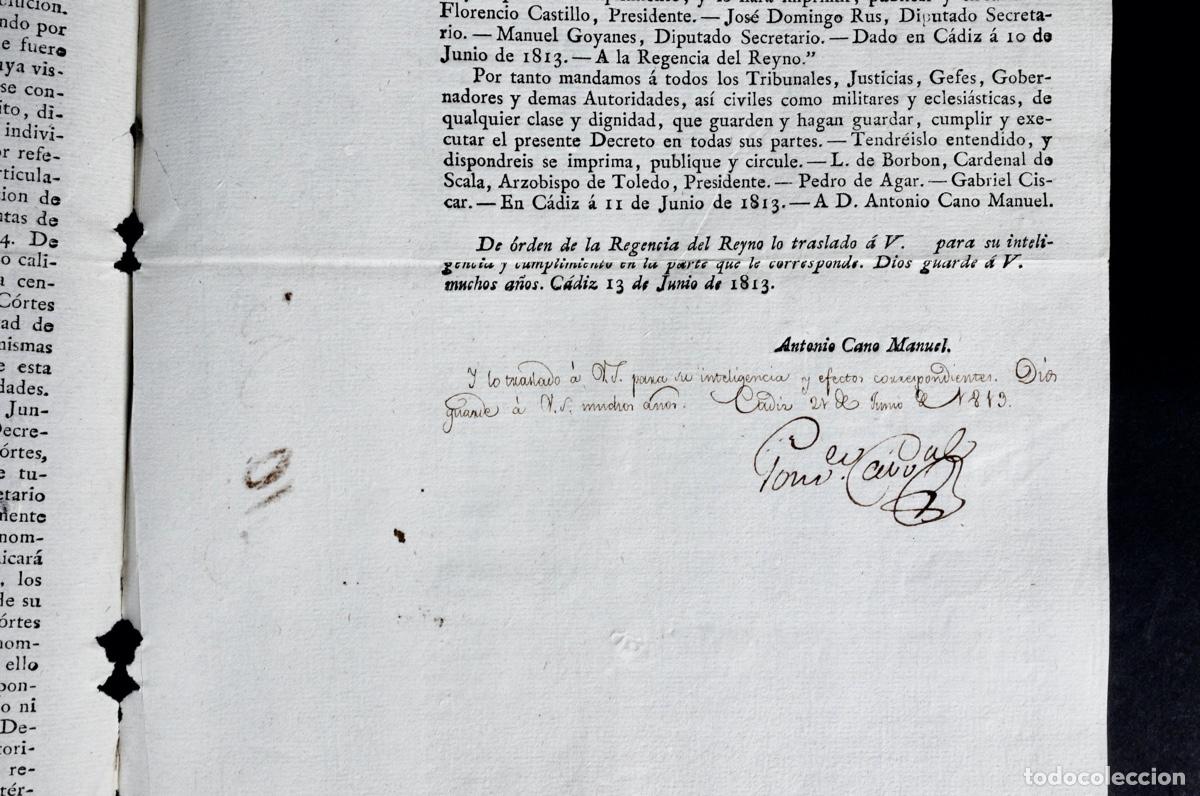 lucion.
ndo por
e fuero
uya vis-
se con-
ito, di-
indivi-
or refe-
rticula-
cion de
ntas de
4. De
o cali-
a cen-
Córtes
ad de
nismas
e esta
dades.
Jun-
Decre-
órtes,
e tu-
etario
mente
nom-
nicará
, los
de su
órtes
nom-
ello
pon-
o ni
De-
tori-
re-
tér-
Florencio Castillo, Presidente. — José Domingo Rus, Diputado Secreta-
rio. — Manuel Goyanes, Diputado Secretario. — Dado en Cádiz á 10 de
Junio de 1813. — A la Regencia del Reyno.”
Por tanto mandamos á todos los Tribunales, Justicias, Gefes, Gober-
nadores y demas Autoridades, así civiles como militares y eclesiásticas, de
qualquier clase y dignidad, que guarden y hagan guardar, cumplir y exe-
cutar el presente Decreto en todas sus partes. — Tendréislo entendido, y
dispondreis se imprima, publique y circule. — L. de Borbon, Cardenal de
Scala, Arzobispo de Toledo, Presidente. — Pedro de Agar. — Gabriel Cis-
car. — En Cádiz á 11 de Junio de 1813. — A D. Antonio Cano Manuel.
De órden de la Regencia del Reyno lo traslado á V. para su inteli-
gencia y cumplimiento en la parte que le corresponde. Dios guarde á V.
muchos años. Cádiz 13 de Junio de 1813.
Antonio Cano Manuel.
Y lo traslado á V.S. para su inteligencia y efectos correspondientes. Dios
guarde á V.S. muchos años. Cadiz 21 de Junio de 1813.
todocoleccion